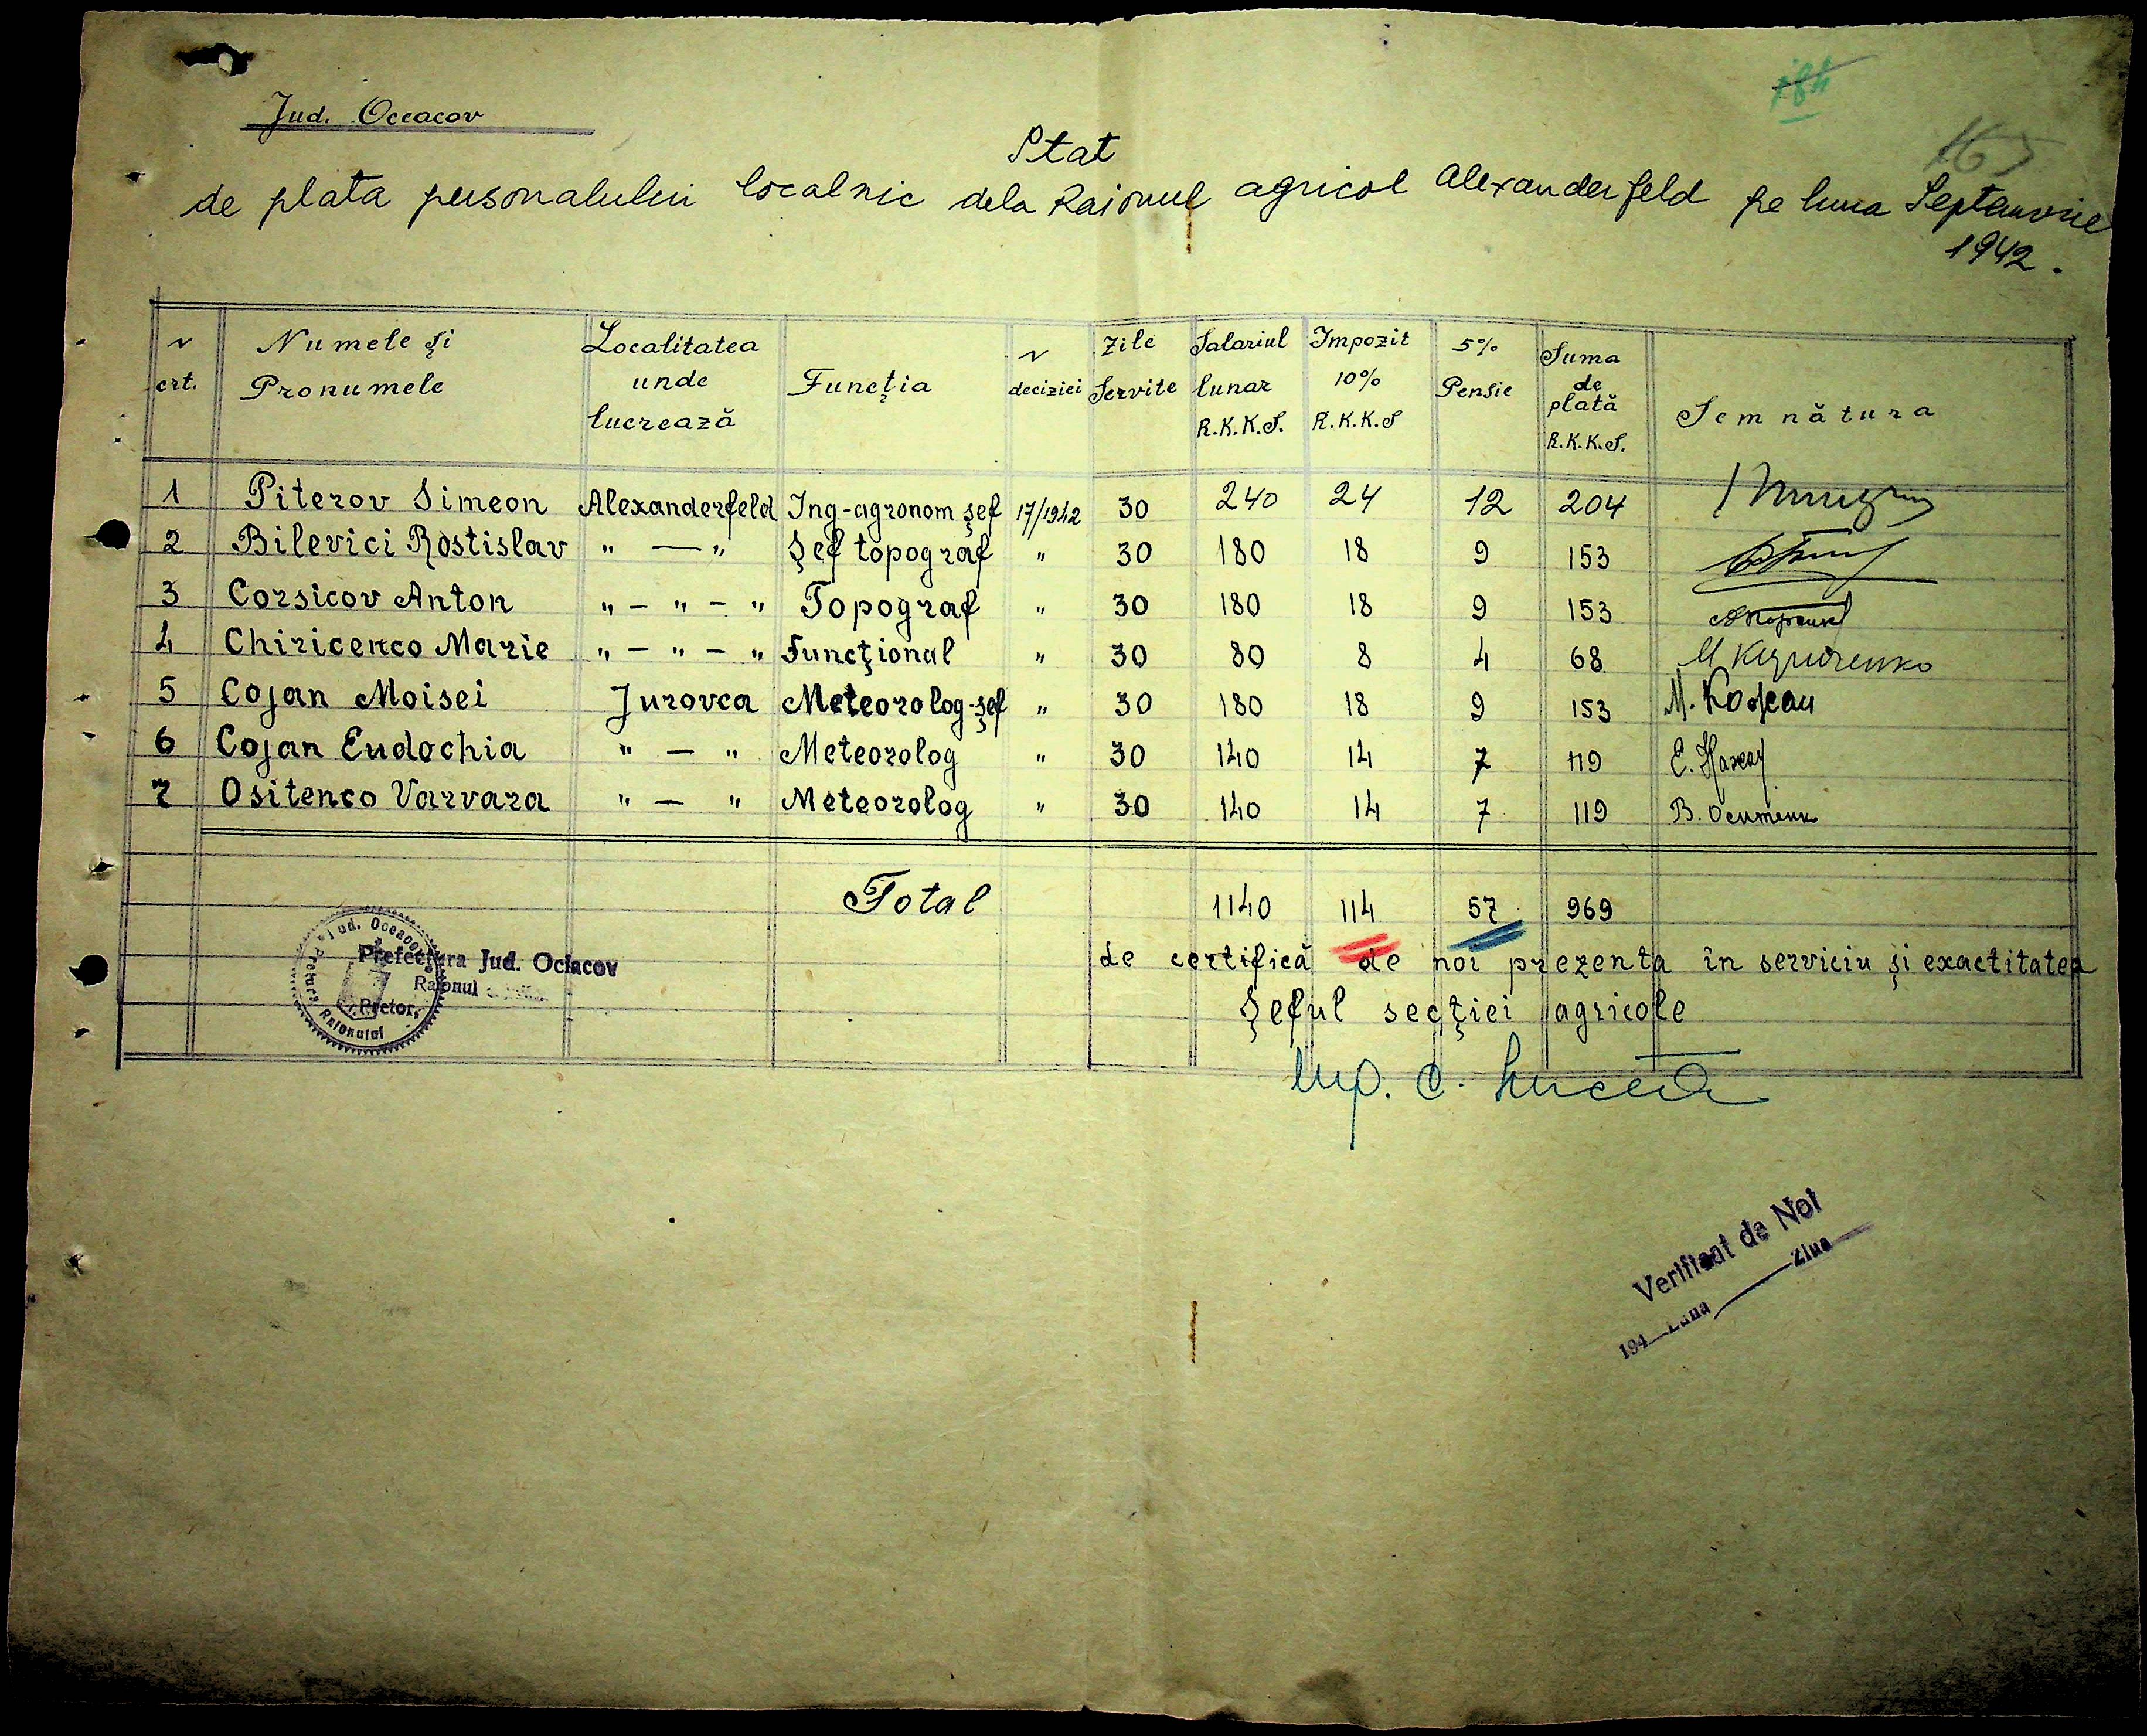 184
165
Jud. Oceacov
Stat
de plata personalului localnic dela Raionul agricol Alexanderfeld pe luna Septemvrie
1942.
N crt. Numele şi Pronumele Localitatea unde lucrează Funcţia N deciziei Zile Servite Salariul lunar R.K.K.S. Impozit 10% R.K.K.S 5% Pensie Suma de plată R.K.K.S. Semnătura
1 Piterov Simeon Alexanderfeld Ing-agronom şef 17/1942 30 240 24 12 204
2 Bilevici Rostislav " — " Şef topograf " 30 180 18 9 153
3 Corsicov Anton " - " - " Topograf " 30 180 18 9 153
4 Chiricenco Marie " - " - " Funcţional " 30 80 8 4 68 М Кириченко
5 Cojan Moisei Jurovca Meteorolog-şef " 30 180 18 9 153
6 Cojan Eudochia " — " Meteorolog " 30 140 14 7 119
7 Ositenco Varvara " — " Meteorolog " 30 140 14 7 119 В. Оситенк
Total 1140 114 57 969
de certifică de noi prezenta în serviciu şi exactitatea
Şeful secţiei agricole
Jud. Oceacov
Pretura Raionului
Prefectura Jud. Ociacov
Raionul
Pretor,
Verificat de Noi
194 Luna Ziua